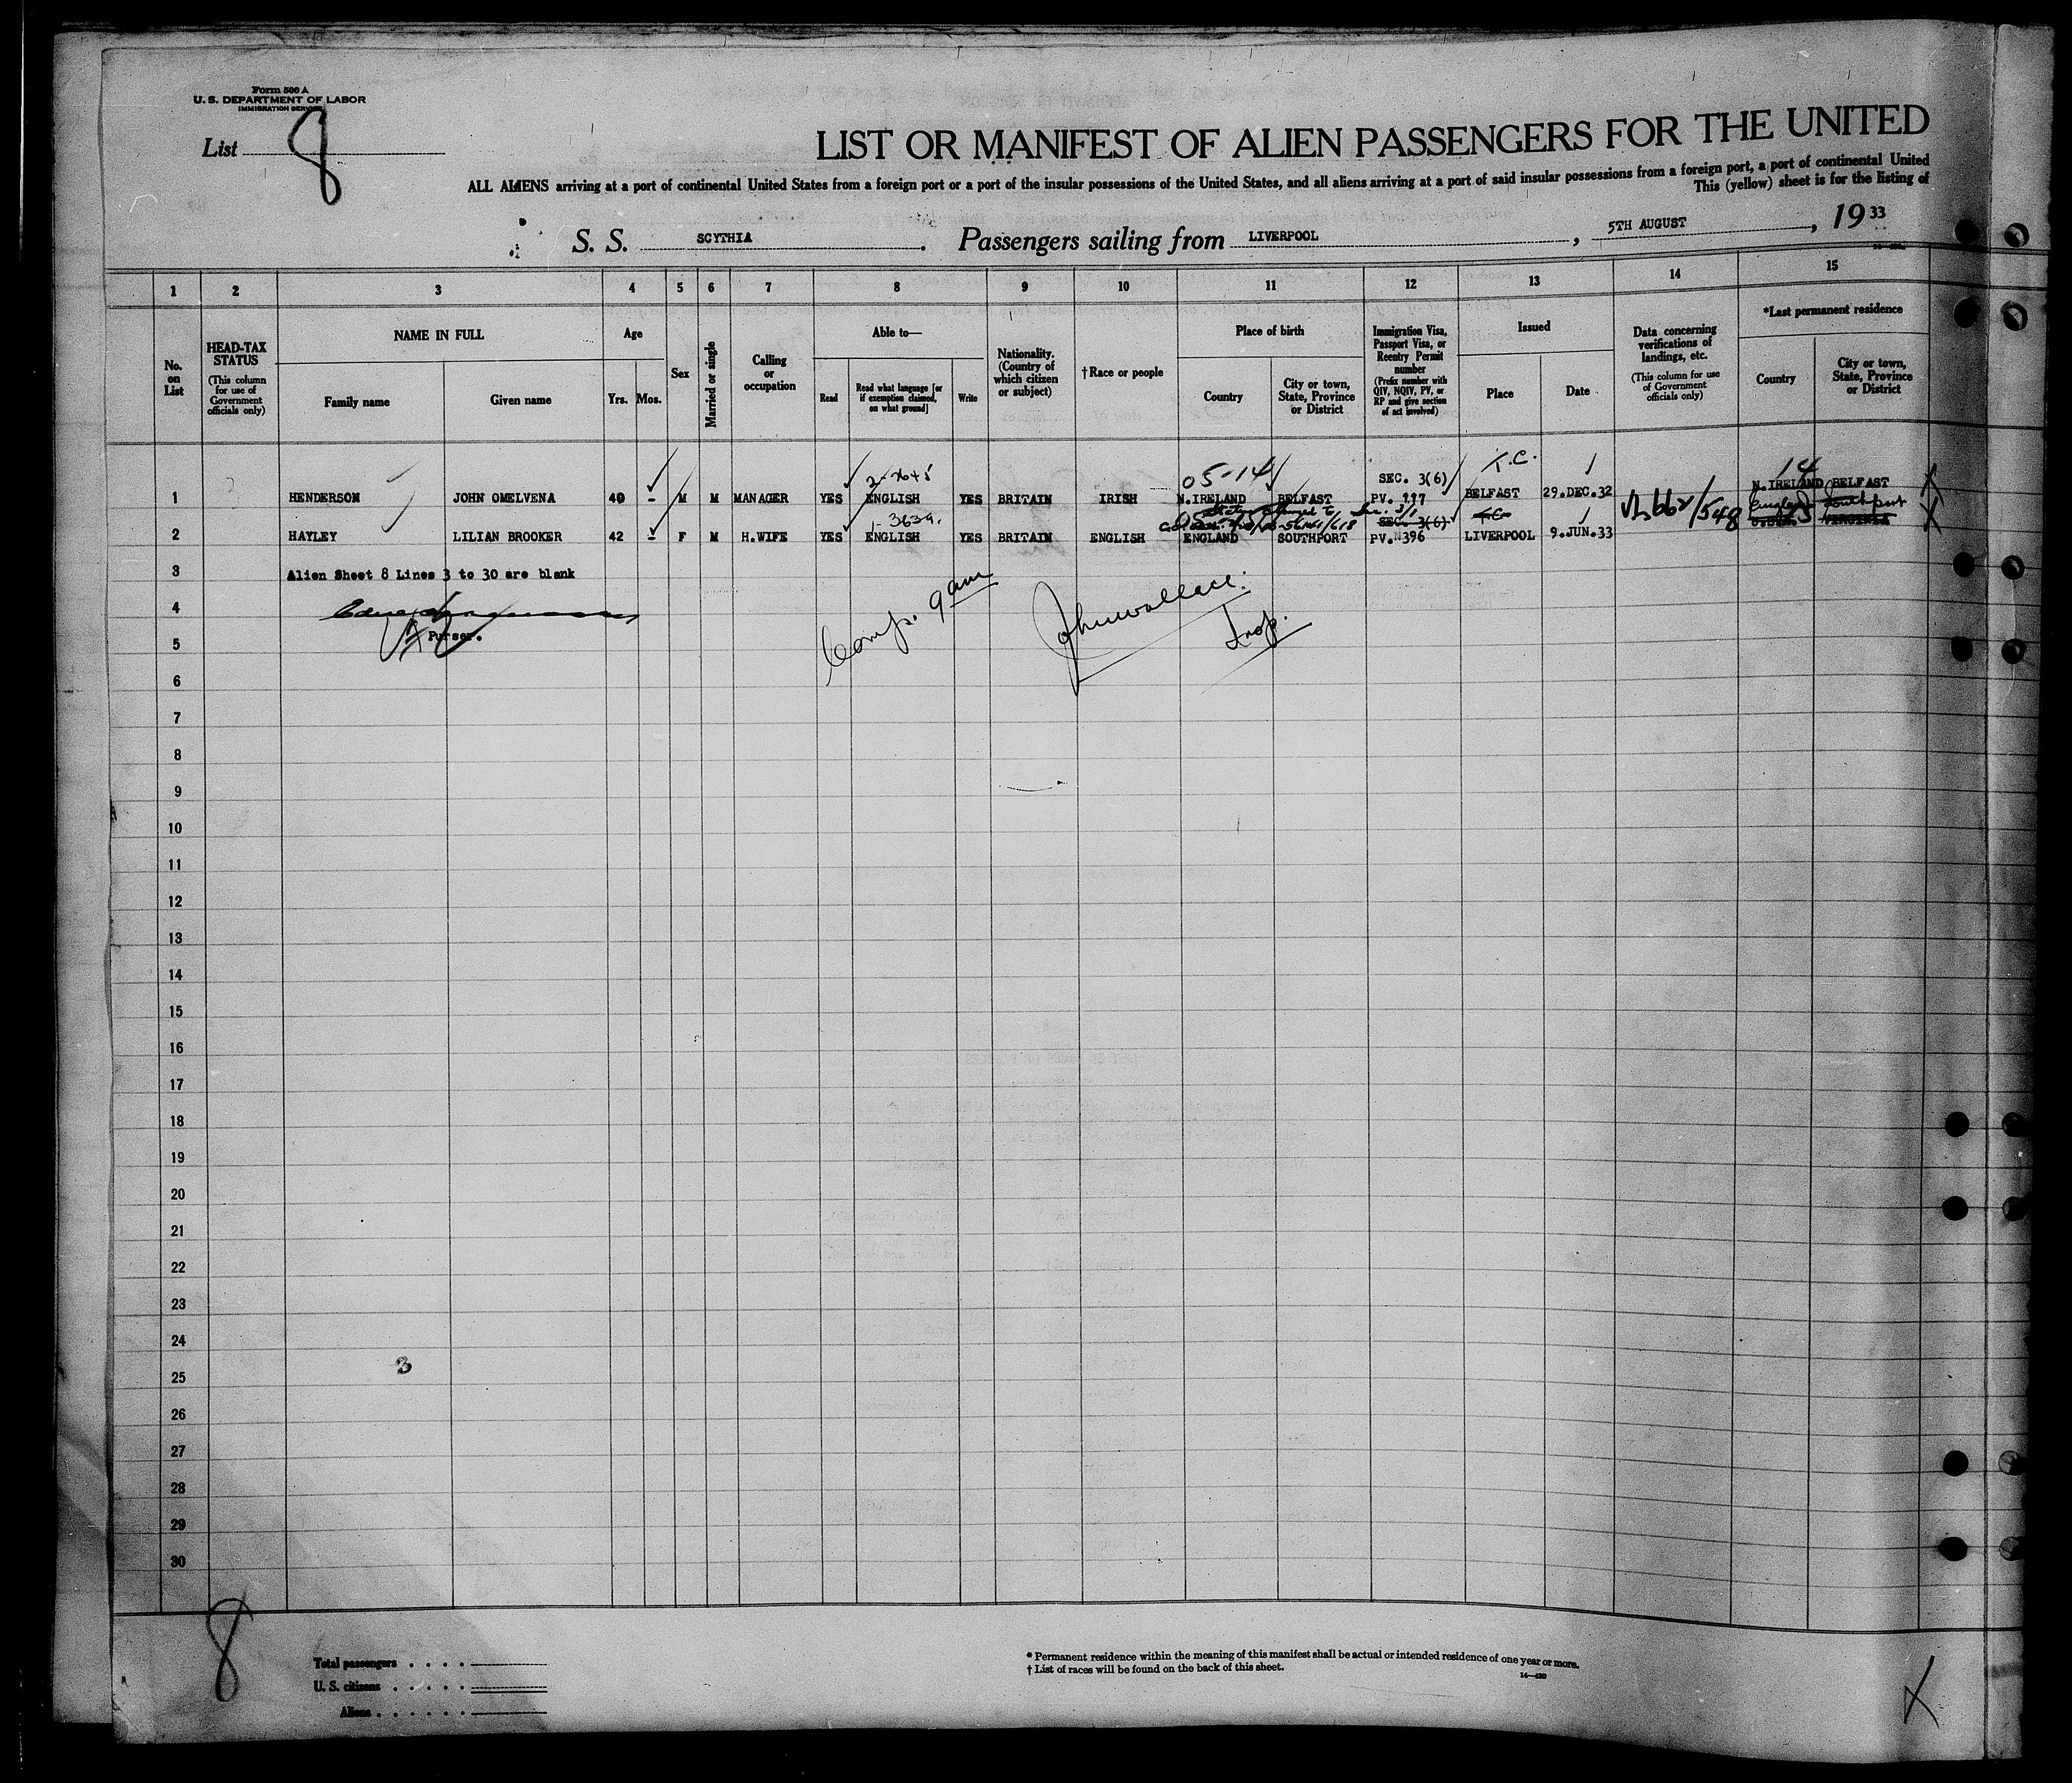 Form 500 A
U. S. DEPARTMENT OF LABOR
IMMIGRATION SERVICE
List 8
LIST OR MANIFEST OF ALIEN PASSENGERS FOR THE UNITED
ALL ALIENS arriving at a port of continental United States from a foreign port or a port of the insular possessions of the United States, and all aliens arriving at a port of said insular possessions from a foreign port, a port of continental United
This (yellow) sheet is for the listing of
S. S. SCYTHIA. Passengers sailing from LIVERPOOL, 5TH AUGUST, 1933
1 2 3 4 5 6 7 8 9 10 11 12 13 14 15
No. on List
HEAD-TAX STATUS
(This column for use of Government officials only)
NAME IN FULL
Family name
Given name
Age
Yrs. Mos.
Sex
Married or single
Calling or occupation
Able to—
Read
Read what language [or if exemption claimed, on what ground]
Write
Nationality. (Country of which citizen or subject)
†Race or people
Place of birth
Country
City or town, State, Province or District
Immigration Visa, Passport Visa, or Reentry Permit number
(Prefix number with QIV, NQIV, PV, or RP and give section of act involved)
Issued
Place
Date
Data concerning verifications of landings, etc.
(This column for use of Government officials only)
*Last permanent residence
Country
City or town, State, Province or District
05-14 SEC. 3(6) T.C. 14
1 HENDERSON JOHN OMELVENA 40 - M M MANAGER YES ENGLISH YES BRITAIN IRISH N.IRELAND BELFAST PV. 117 BELFAST 29.DEC.32 N.IRELAND BELFAST
SEC. 3(6) T.C. England Southport
U.S.A. VIRGINIA
2 HAYLEY LILIAN BROOKER 42 - F M H.WIFE YES ENGLISH YES BRITAIN ENGLISH ENGLAND SOUTHPORT PV.N396 LIVERPOOL 9.JUN.33
3 Alien Sheet 8 Lines 3 to 30 are blank
4
Purser.
Comp. 9 am
John Wallace.
Insp.
5
6
7
8
9
10
11
12
13
14
15
16
17
18
19
20
21
22
23
24
3
25
26
27
28
29
30
8
Total passengers . . . .
U. S. citizens . . . . .
Aliens . . . . . .
* Permanent residence within the meaning of this manifest shall be actual or intended residence of one year or more.
† List of races will be found on the back of this sheet.
14—430
X